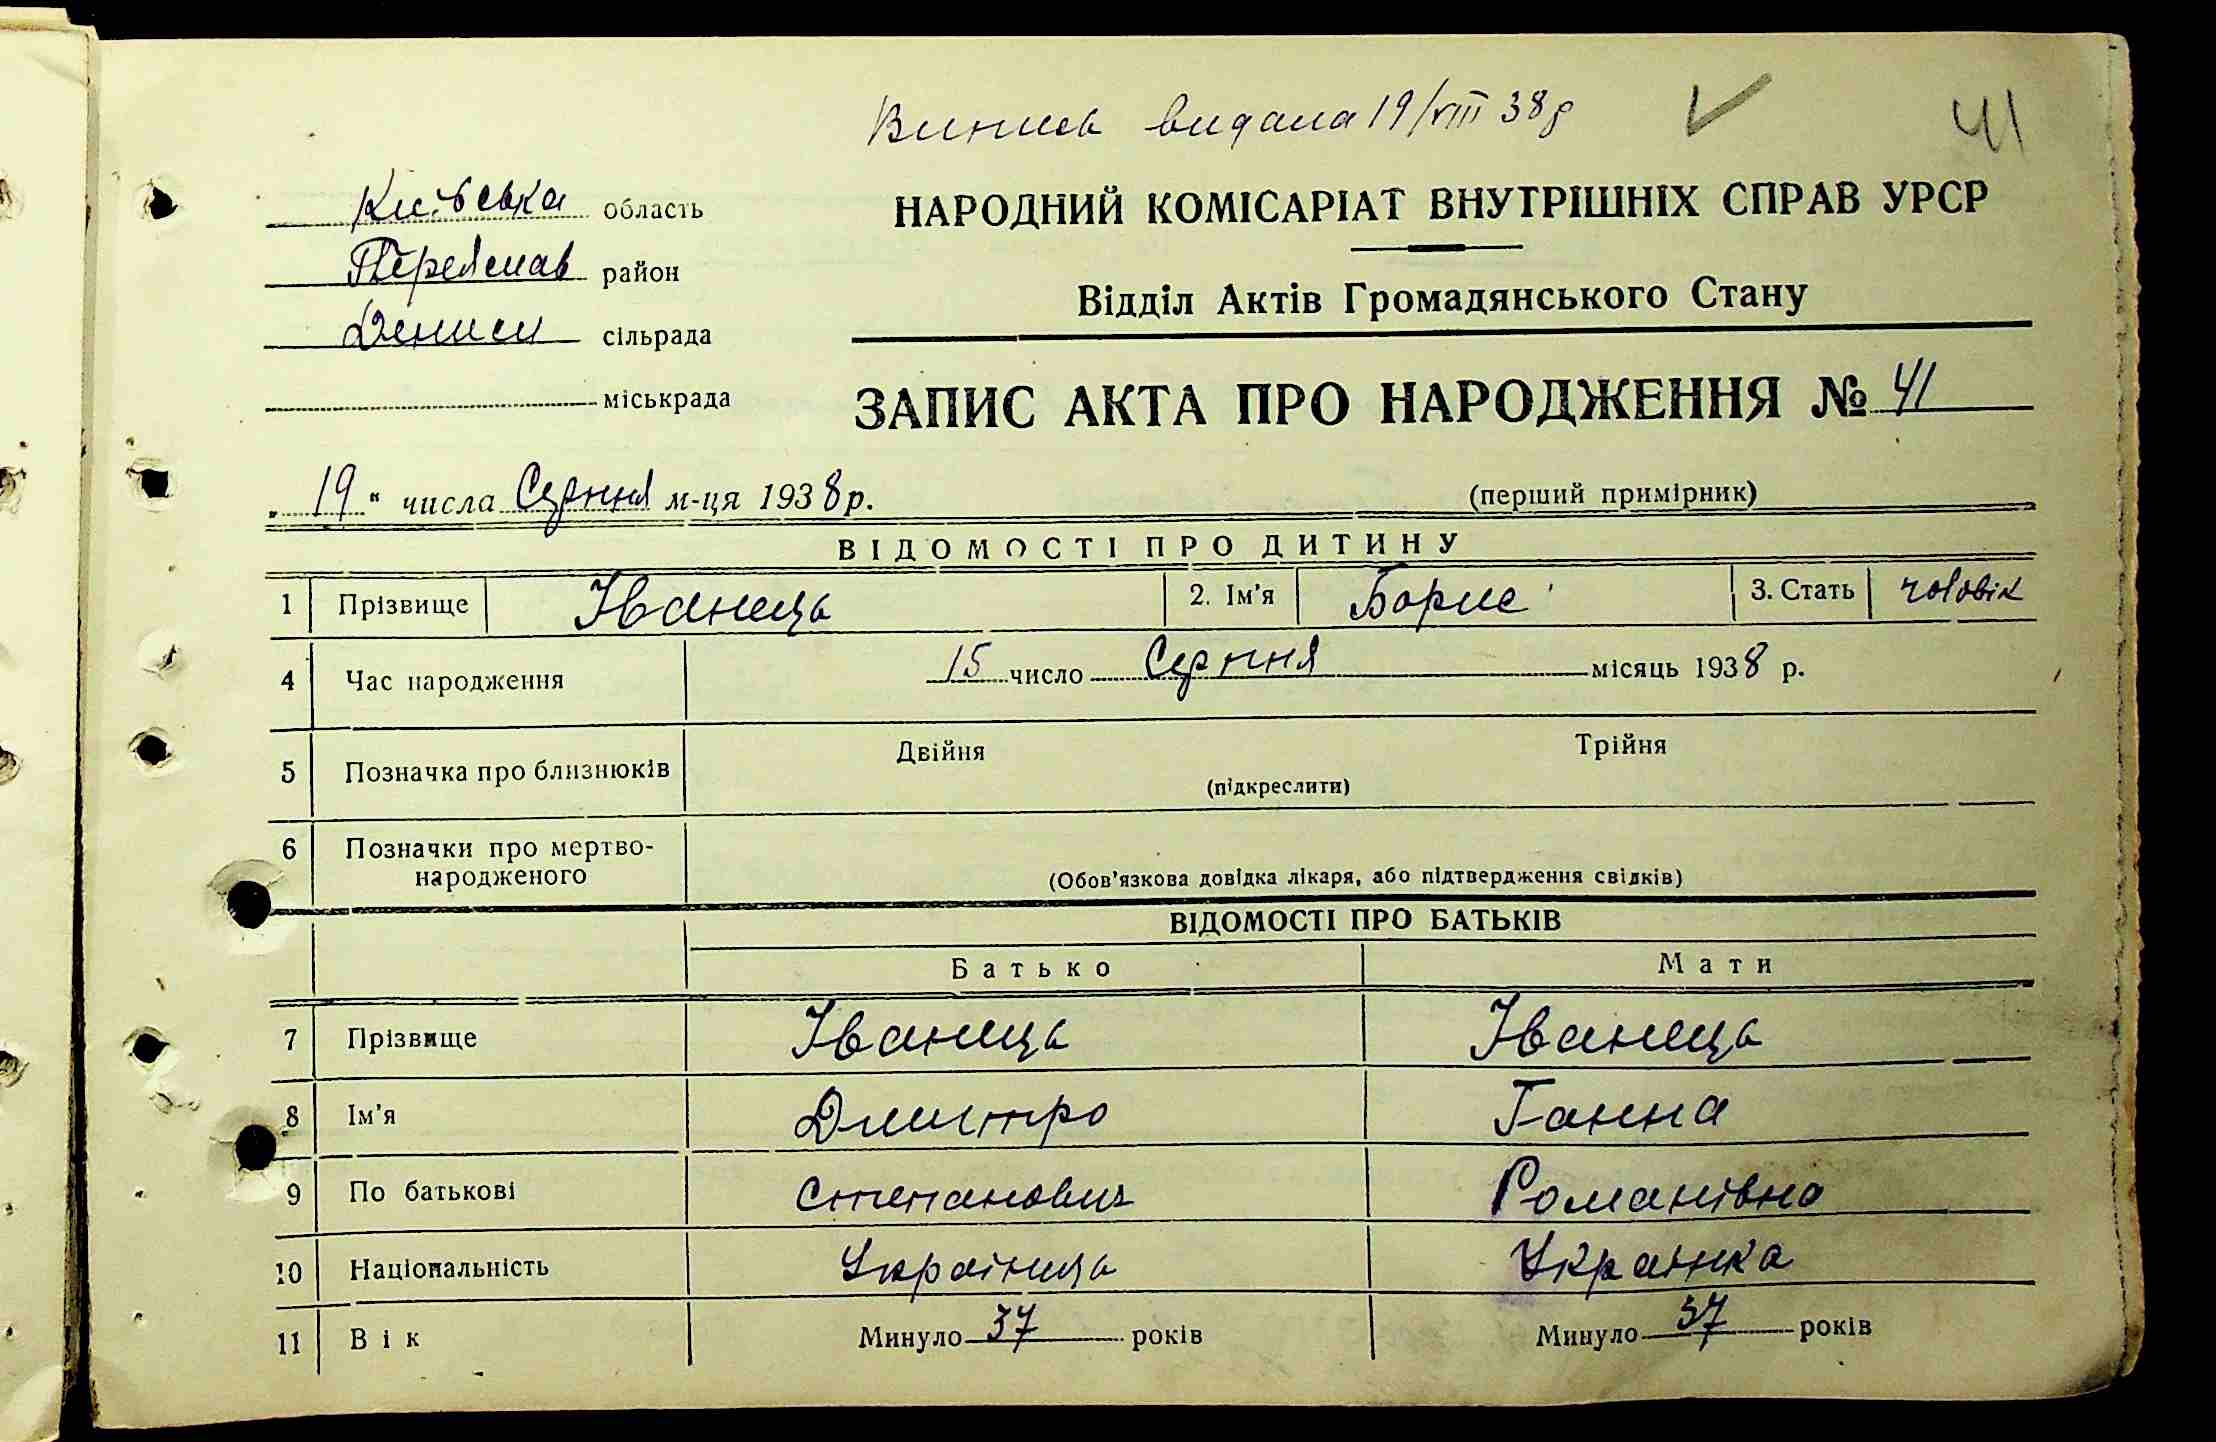 Випись видана 19/VIII 38 р
41
Київська область
Переяслав район
Дениси сільрада
міськрада
НАРОДНИЙ КОМІСАРІАТ ВНУТРІШНІХ СПРАВ УРСР
Відділ Актів Громадянського Стану
ЗАПИС АКТА ПРО НАРОДЖЕННЯ № 41
„ 19 “ числа Серпня м-ця 1938 р.
(перший примірник)
ВІДОМОСТІ ПРО ДИТИНУ
1 Прізвище Іванець 2. Ім'я Борис 3. Стать чоловік
4 Час народження 15 число Серпня місяць 1938 р.
5 Позначка про близнюків Двійня Трійня
(підкреслити)
6 Позначки про мертво-
народженого
(Обов'язкова довідка лікаря, або підтвердження свідків)
ВІДОМОСТІ ПРО БАТЬКІВ
Батько Мати
7 Прізвище Іванець Іванець
8 Ім'я Дмитро Ганна
9 По батькові Степанович Романівна
10 Національність Українець Українка
11 Вік Минуло 37 років Минуло 37 років